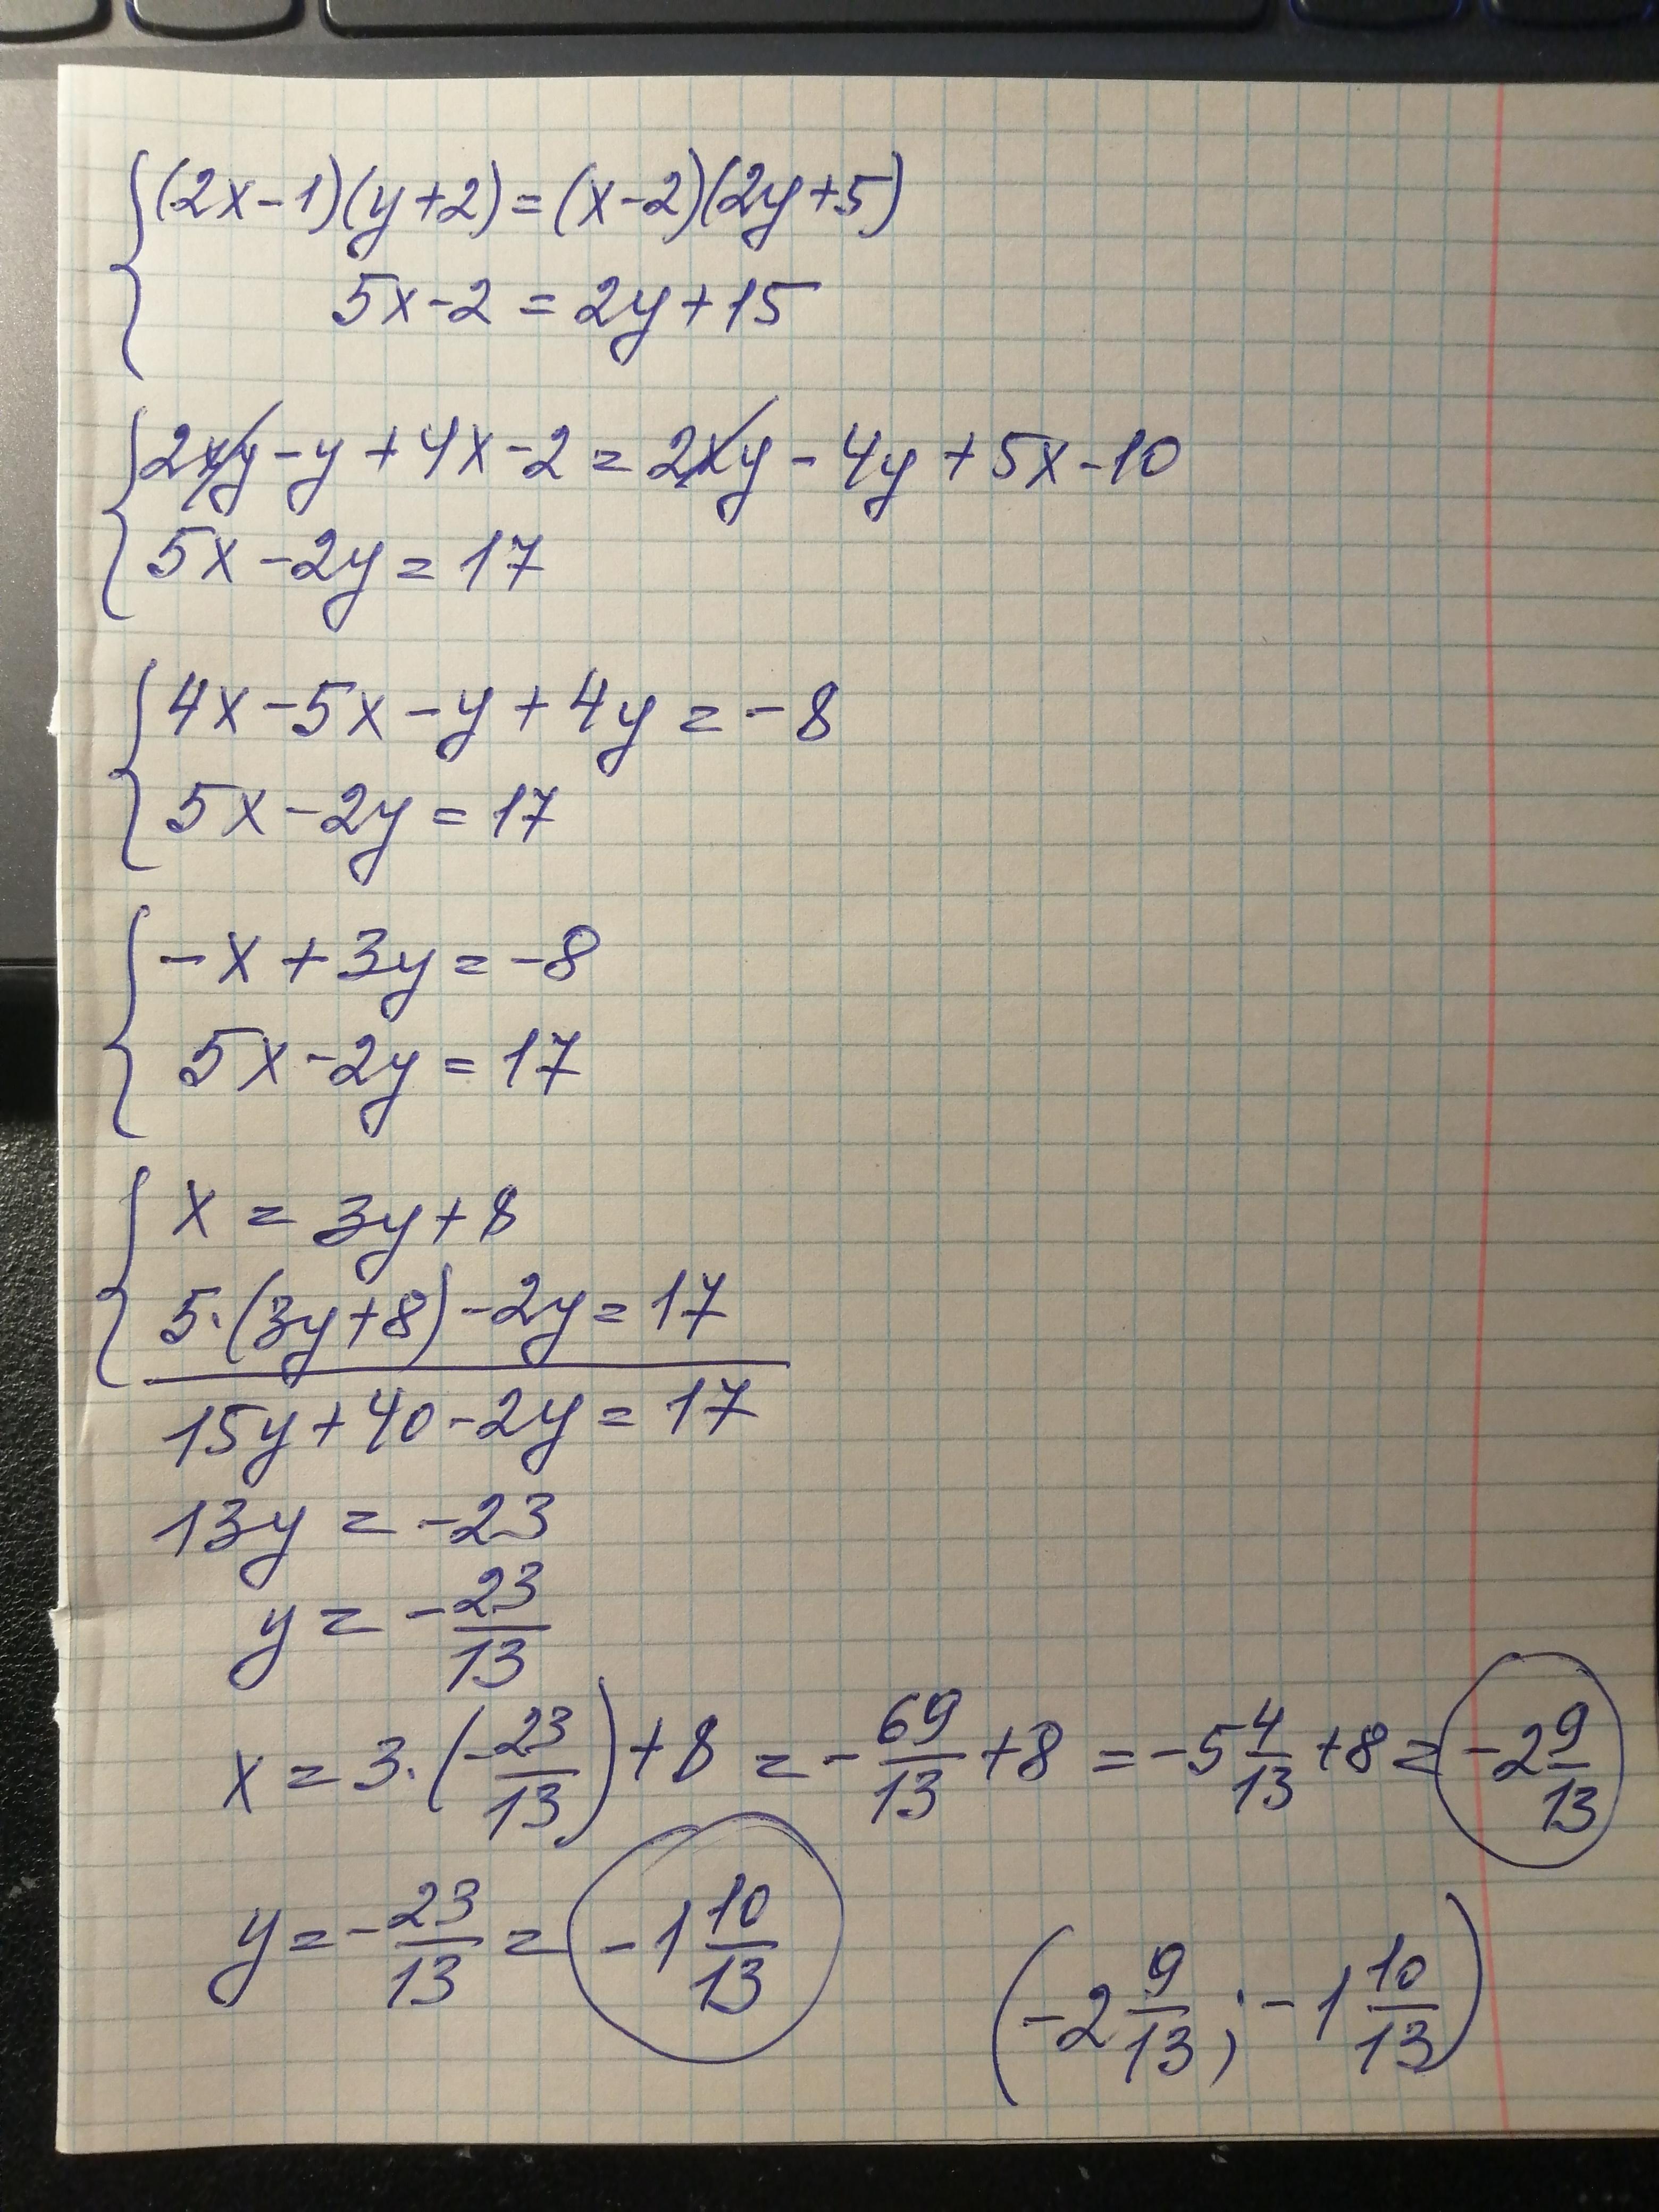 (2x-1)(y+2)=(x-2)(2y+5)
5x-2=2y+15
2xy-y+4x-2=2xy-4y+5x-10
5x-2y=17
4x-5x-y+4y=-8
5x-2y=17
-x+3y=-8
5x-2y=17
x=3y+8
5·(3y+8)-2y=17
15y+40-2y=17
13y=-23
y=-23/13
x=3·(-23/13)+8=-69/13+8=-5 4/13+8=-2 9/13
y=-23/13=-1 10/13
(-2 9/13; -1 10/13)